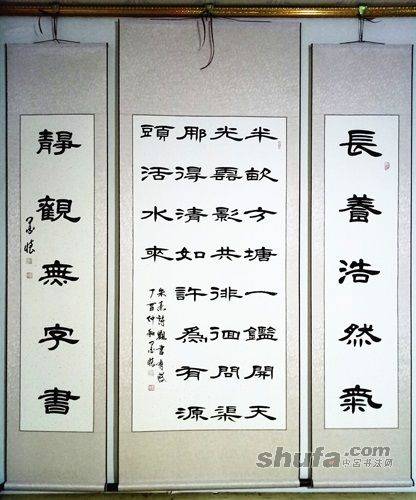 長養浩然氣
半畝方塘一鑑開天
光雲影共徘徊問渠
那得清如許為有源
頭活水來
朱熹詩觀書有感
丁酉仲秋
靜觀無字書
shufa.com
中国书法网